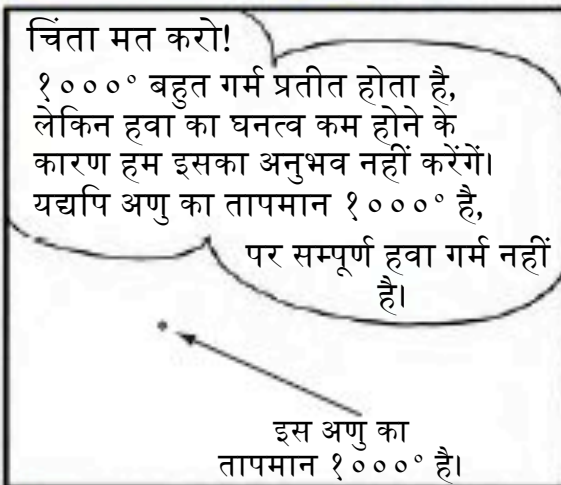 चिंता मत करो!
१०००° बहुत गर्म प्रतीत होता है,
लेकिन हवा का घनत्व कम होने के
कारण हम इसका अनुभव नहीं करेंगें।
यद्यपि अणु का तापमान १०००° है,
पर सम्पूर्ण हवा गर्म नहीं
है।
इस अणु का
तापमान १०००° है।